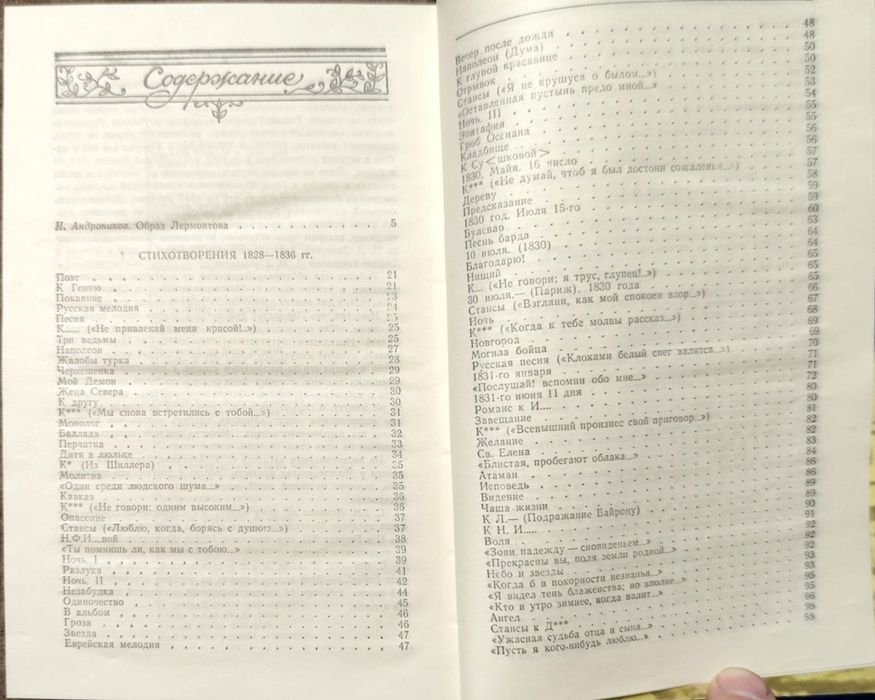 Содержание
И. Андроников. Образ Лермонтова . . . . . . . . . . 5
СТИХОТВОРЕНИЯ 1828—1836 гг.
Поэт 21
К Гению 21
Покаяние 23
Русская мелодия 24
Песня 25
К...... («Не привлекай меня красой!..») 25
Три ведьмы 25
Наполеон 27
Жалобы турка 28
Черкешенка 29
Мой Демон 29
Жена Севера 30
К другу 30
К*** («Мы снова встретились с тобой...») 31
Монолог 31
Баллада 32
Перчатка 33
Дитя в люльке 34
К* (Из Шиллера) 35
Молитва 35
«Один среди людского шума...» 35
Кавказ 36
К*** («Не говори: одним высоким...») 36
Опасение 37
Стансы («Люблю, когда, борясь с душою...») 37
Н.Ф.И....вой 38
«Ты помнишь ли, как мы с тобою...» 39
Ночь. I 39
Разлука 41
Ночь. II 42
Незабудка 44
Одиночество 45
В альбом 46
Гроза 46
Звезда 47
Еврейская мелодия 47
Вечер после дождя 48
Наполеон (Дума) 48
К глупой красавице 50
Отрывок 50
Стансы («Я не крушуся о былом...») 52
«Оставленная пустынь предо мной...» 53
Ночь. III 54
Эпитафия 55
Гроб Оссиана 55
Кладбище 56
К Су<шковой> 56
1830. Майя. 16 число 57
К*** («Не думай, чтоб я был достоин сожаленья...») 57
Дереву 58
Предсказание 59
1830 год. Июля 15-го 59
Булевар 60
Песнь барда 63
10 июля. (1830) 64
Благодарю! 64
Нищий 65
К... («Не говори: я трус, глупец!..») 65
30 июля.— (Париж). 1830 года 65
Стансы («Взгляни, как мой спокоен взор...») 66
Ночь 67
К*** («Когда к тебе молвы рассказ...») 68
Новгород 69
Могила бойца 69
Русская песня («Клоками белый снег валится...») 70
1831-го января 71
«Послушай! вспомни обо мне...» 71
1831-го июня 11 дня 72
Романс к И.... 80
Завещание 80
К*** («Всевышний произнес свой приговор...») 81
Желание 82
Св. Елена 82
«Блистая, пробегают облака...» 83
Атаман 84
Исповедь 86
Видение 86
Чаша жизни 89
К Л.— (Подражание Байрону) 89
К Н. И..... 90
Воля 91
«Зови надежду — сновиденьем...» 92
«Прекрасны вы, поля земли родной...» 92
Небо и звезды 93
«Когда б в покорности незнанья...» 93
«Я видел тень блаженства; но вполне...» 95
«Кто в утро зимнее, когда валит...» 95
Ангел 96
Стансы к Д***
«Ужасная судьба отца и сына...» 98
«Пусть я кого-нибудь люблю...» 98